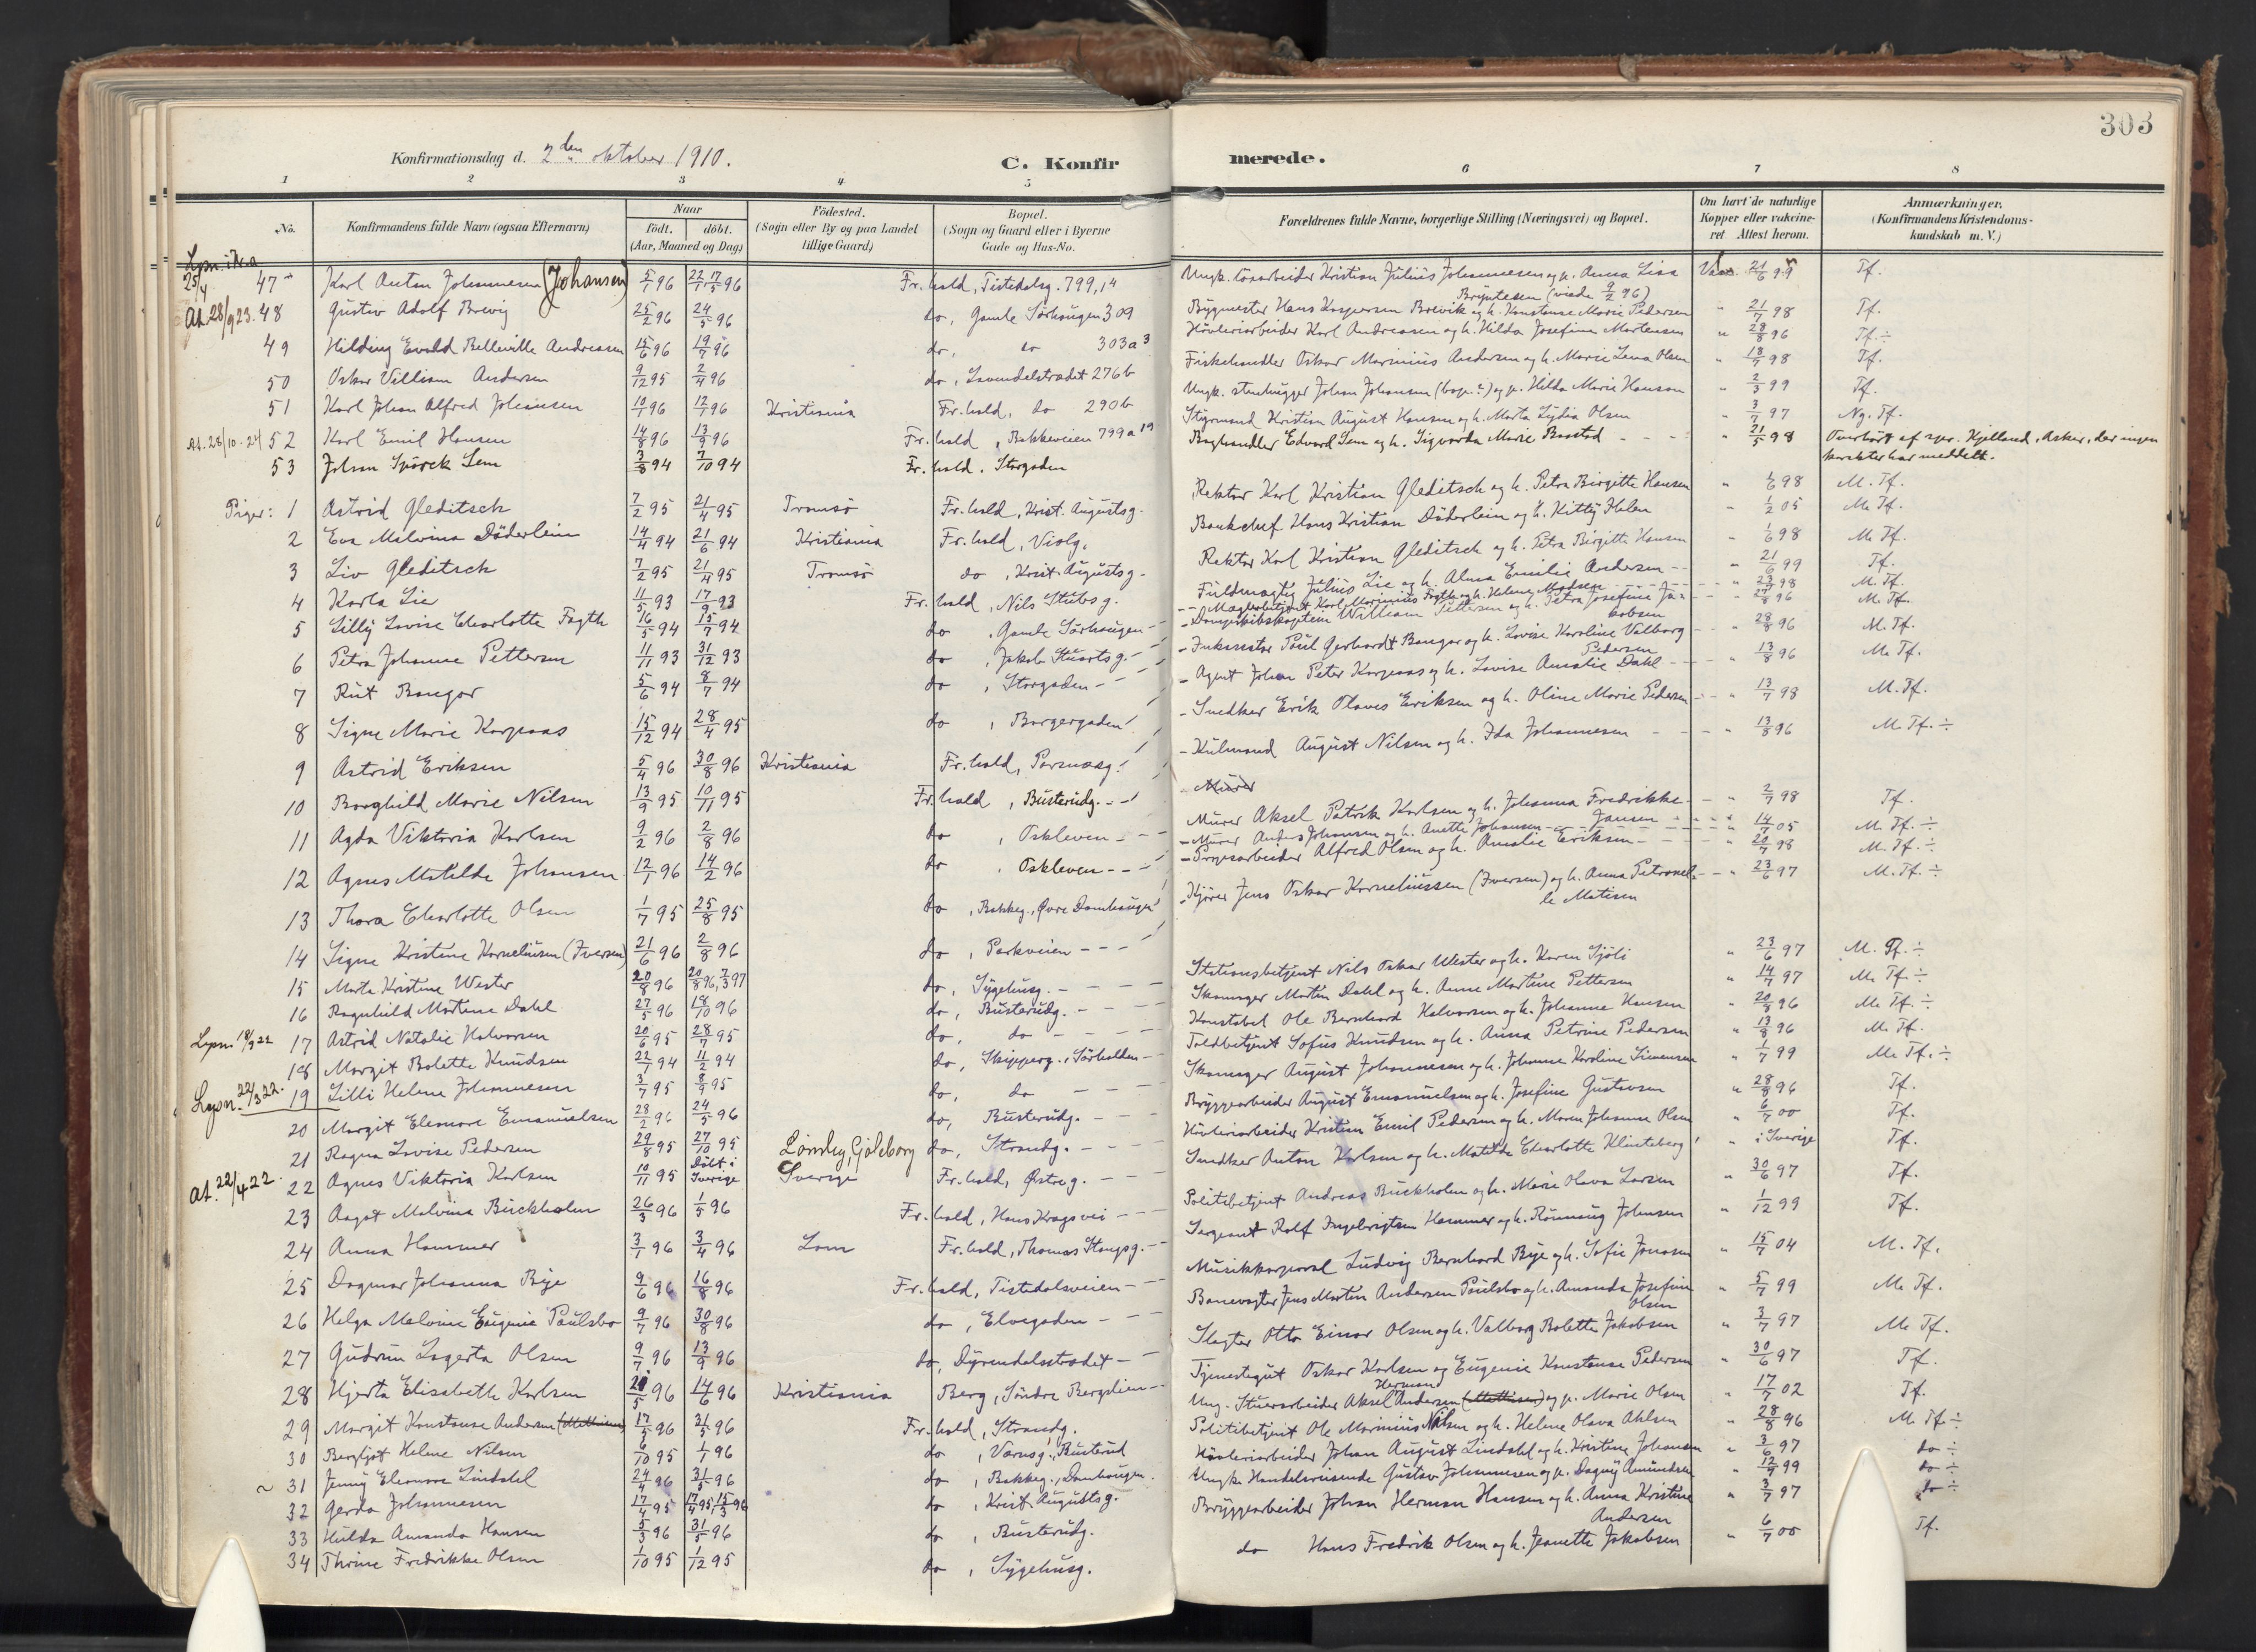 303
Konfirmationsdag d. 2den oktober 1910.
C. Konfirmerede.
1 2 3 4 5 6 7 8
No. Konfirmandens fulde Navn (ogsaa Efternavn) Naar födt. döbt. (Aar, Maaned og Dag) Födested. (Sogn eller By og paa Landet tillige Gaard) Bopæl. (Sogn og Gaard eller i Byerne Gade og Hus-No. Forældrenes fulde Navne, borgerlige Stilling (Næringsvei) og Bopæl. Om havt de naturlige Kopper eller vakcineret Attest herom. Anmærkninger. (Konfirmandens Kristendomskundskab m. V.)
25/4 47 Karl Anton Johannesen (Johansen) 5/1 96 22/1 96 Fr.hald, Tistedalsg. 799,14 Ungk. Kristian Julius Johannesen og p. Anna Lisa Bryntesen (viede 9/2 96) 21/6 99 Tf.
At. 28/9 23. 48 Gustav Adolf Brevig 25/2 96 24/5 96 do, Gamle Sørhaugen 309 Bygmester Hans Kaspersen Brevik og h. Konstanse Marie Pedersen " 21/7 98 Tf.
49 Hilding Evald Belleville Andreassen 15/6 96 19/7 96 do, do 303a3 Høvleriarbeider Karl Andreassen og h. Hilda Josefine Martensen " 28/8 96 Tf. ÷
50 Oskar Villiam Andersen 9/12 95 2/4 96 do, Lavendelstrædet 276b Fiskehandler Oskar Marinius Andersen og h. Marie Lena Olsen " 18/7 98 Tf.
51 Karl Johan Alfred Johansen 10/1 96 12/1 96 Kristiania Fr.hald, do 290b Ungk. stenhugger Johan Johansen (bop. ?) og p. Hilda Marie Hanson " 2/3 99 Tf.
At. 28/10. 24 52 Karl Emil Hansen 14/8 96 13/9 96 Fr.hald, Bakkeveien 799a19 Styrmand Kristian August Hansen og h. Marta Lydia Olsen " 3/7 97 Ng. Tf.
53 Johan Spørck Lem 3/8 94 7/10 94 Fr.hald. Storgaden Boghandler Edvard Lem og h. Sigvarda Marie Baastad " 21/5 98 Overhørt af spr. Kjelland, Asker, der ingen karakter har meddelt.
Piger: 1 Astrid Gleditsch 7/2 95 21/4 95 Tromsø Fr.hald, Krist. Augustsg. Rektor Karl Kristian Gleditsch og h. Petra Birgitte Hansen " 1/6 98 M. Tf.
2 Eva Malvina Döderlein 14/4 94 21/6 94 Kristiania Fr.hald, Violg. Bankchef Hans Kristian Döderlein og h. Kitty Holen " 1/2 05 M. Tf.
3 Liv Gleditsch 7/2 95 21/4 95 Tromsø do, Krist. Augustsg. Rektor Karl Kristian Gleditsch og h. Petra Birgitte Hansen " 1/6 98 M. Tf.
4 Karla Lie 11/5 93 17/9 93 Fr.hald, Nils Stubsg. Fuldmægtig Julius Lie og h. Alma Emilie Andersen " 21/6 99 Tf.
5 Lilly Lovise Charlotte Fagth 16/5 94 15/7 94 do, Gamle Sørhaugen Karl Marinius Fagth og h. Helene Madsen " 23/7 98 M. Tf.
6 Petra Johanne Pettersen 11/11 93 31/12 93 do, Jakob Stuartsg. Dampskibskaptein William Pettersen og h. Petra Josefine Jakobsen " 27/8 96 M. Tf.
7 Rut Bangor 5/6 94 8/7 94 do, Storgaden Inkassator Paul Gerhardt Bangor og h. Lovise Karoline Valborg Pedersen " 28/8 96 M. Tf.
8 Signe Marie Korpaas 15/12 94 28/4 95 do, Borgergaden Agent Johan Peter Korpaas og h. Lovise Amalie Dahl " 13/8 96 M. Tf.
9 Astrid Eriksen 5/4 96 30/8 96 Kristiania Fr.hald, Pæsnæsg. Snedker Erik Olaves Eriksen og h. Oline Marie Pedersen " 13/7 98 M. Tf.
10 Borghild Marie Nilsen 13/9 95 10/11 95 Fr.hald, Busterudg. Kulmand August Nilsen og h. Ida Johannesen " 13/8 96 M. Tf. ÷
Murer
11 Agda Viktoria Karlsen 9/2 96 2/8 96 do, Oskleven Murer Aksel Patrik Karlsen og h. Johanna Fredrikke Jansen " 2/7 98 Tf.
12 Agnes Matilde Johansen 12/1 96 14/2 96 do, Oskleven Murer Anders Johansen og h. Anette Johansen " 14/7 05 M. Tf. ÷
13 Thora Charlotte Olsen 1/7 95 25/8 95 do, Bakkeg., Øvre Damhaugen Alfred Olsen og h. Amalie Eriksen " 20/7 98 M. Tf. ÷
14 Signe Kristine Korneliussen (Iversen) 21/6 96 2/8 96 do, Parkveien Kjører Jens Oskar Korneliussen (Iversen) og h. Anna Petronelle Matisen " 23/6 97 M. Tf. ÷
15 Marta Kristine Wester 20/8 96 20/8 96, 7/3 97 do, Sygehusg. Stationsbetjent Nils Oskar Wester og h. Karen Sjöli " 23/6 97 M. Tf. ÷
16 Ragnhild Martine Dahl 27/5 96 18/10 96 do, Busterudg. Skomager Martin Dahl og h. Anne Martine Pettersen " 14/7 97 M. Tf. ÷
Lysn. 18/9 22 17 Astrid Natalie Halvorsen 20/6 95 28/7 95 do, do Konstabel Ole Bernhard Halvorsen og h. Johanne Hansen " 20/8 96 M. Tf. ÷
18 Margit Bolette Knudsen 22/1 94 11/2 94 do, Skipperg., Sørhalden Toldbetjent Sofus Knudsen og h. Anna Petrine Pedersen " 13/8 96 M. Tf.
Lysn. 22/3 22. 19 Lilli Helene Johannesen 3/7 95 8/9 95 do, do Skomager August Johannesen og h. Johanne Karoline Simensen " 1/7 99 M. Tf. ÷
20 Margit Eleonore Emanuelsen 28/2 96 24/5 96 do, Busterudg. Bryggearbeider August Emanuelsen og h. Josefine Gustavsen " 28/8 96 Tf.
21 Ragna Lovise Pedersen 29/8 95 27/10 95 do, Strandg. Høvleriarbeider Kristian Emil Pedersen og h. Maren Johanne Olsen " 6/7 00 Tf.
At. 22/4 22. 22 Agnes Viktoria Karlsen 10/11 95 Döbt i Sverige Lönsby, Göteborg Sverige Fr.hald, Østreg. Snedker Anton Karlsen og h. Matilde Charlotte Klinteberg " i Sverige Tf.
23 Aagot Malvina Buckholm 26/3 96 1/5 96 Fr.hald, Hans Kragsvei Politibetjent Andreas Buckholm og h. Marie Olava Larsen " 30/6 97 Tf.
24 Anna Hammer 3/1 96 3/4 96 Lom Fr.hald, Thomas Stangsg. Sergeant Rolf Ingebrigtsen Hammer og h. Rønnaug Johnsen " 1/12 99 Tf.
25 Dagmar Johanna Bye 9/6 96 16/8 96 Fr.hald, Tistedalsveien Musikkorporal Ludvig Bernhard Bye og h. Sofie Jonasen " 15/7 04 M. Tf.
26 Helga Malvine Eugenie Paulsbo 9/7 96 30/8 96 do, Elvegaden Banevogter Jens Martin Andersen Paulsbo og h. Amanda Josefine Olsen " 5/7 99 M. Tf.
27 Gudrun Lagerta Olsen 9/7 96 13/9 96 do, Dyrendalsstrædet Slagter Otto Einar Olsen og h. Valborg Bolette Jakobsen " 3/7 97 M. Tf.
28 Hjerta Elisabeth Karlsen 20/5 96 14/6 96 Kristiania Berg, Søndre Bergslien Tjenestegut Oskar Karlsen og Eugenie Konstanse Pedersen " 30/6 97 Tf.
29 Margit Konstanse Andersen 17/5 96 31/5 96 Fr.hald, Strandg. Ung. Stuerarbeider Aksel Herman Andersen og p. Marie Olsen " 17/7 02 Tf.
30 Bergljot Helene Nilsen 6/10 95 1/1 96 do, Værnsg., Busterud Politibetjent Ole Marinius Nilsen og h. Helene Olava Ahlsen " 28/8 96 M. Tf ÷
~ 31 Jenny Eleonore Lindahl 24/4 96 31/5 96 do, Bakkeg., Damhaugen. Høvleriarbeider Johan August Lindahl og h. Kristine Johansen " 3/6 97 do ÷
32 Gerda Johannesen 17/4 95 17/4 95, 15/3 96 do, Krist. Augustsg. Ungk. Handelsreisende Gustav Johannesen og p. Dagny Amundsen " 12/7 99 do ÷
33 Hulda Amanda Hansen 5/3 96 31/5 96 do, Busterudg. Bryggearbeider Johan Herman Hansen og h. Anna Kristine Andersen " 3/7 97 do ÷
34 Thrine Fredrikke Olsen 1/10 95 1/12 95 do, Sygehusg. do Hans Fredrik Olsen og h. Jeanette Jakobsen " 6/7 00 Tf.